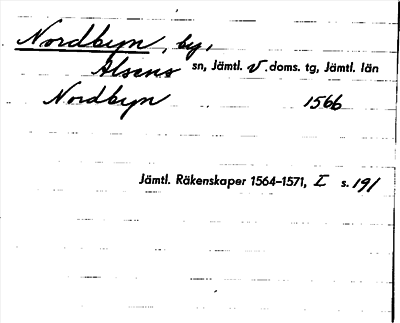 Nordbyn, by,
Alsens sn, Jämtl. v. doms. tg, Jämtl. län
Nordbyn 1566
Jämtl. Räkenskaper 1564–1571, I s. 191